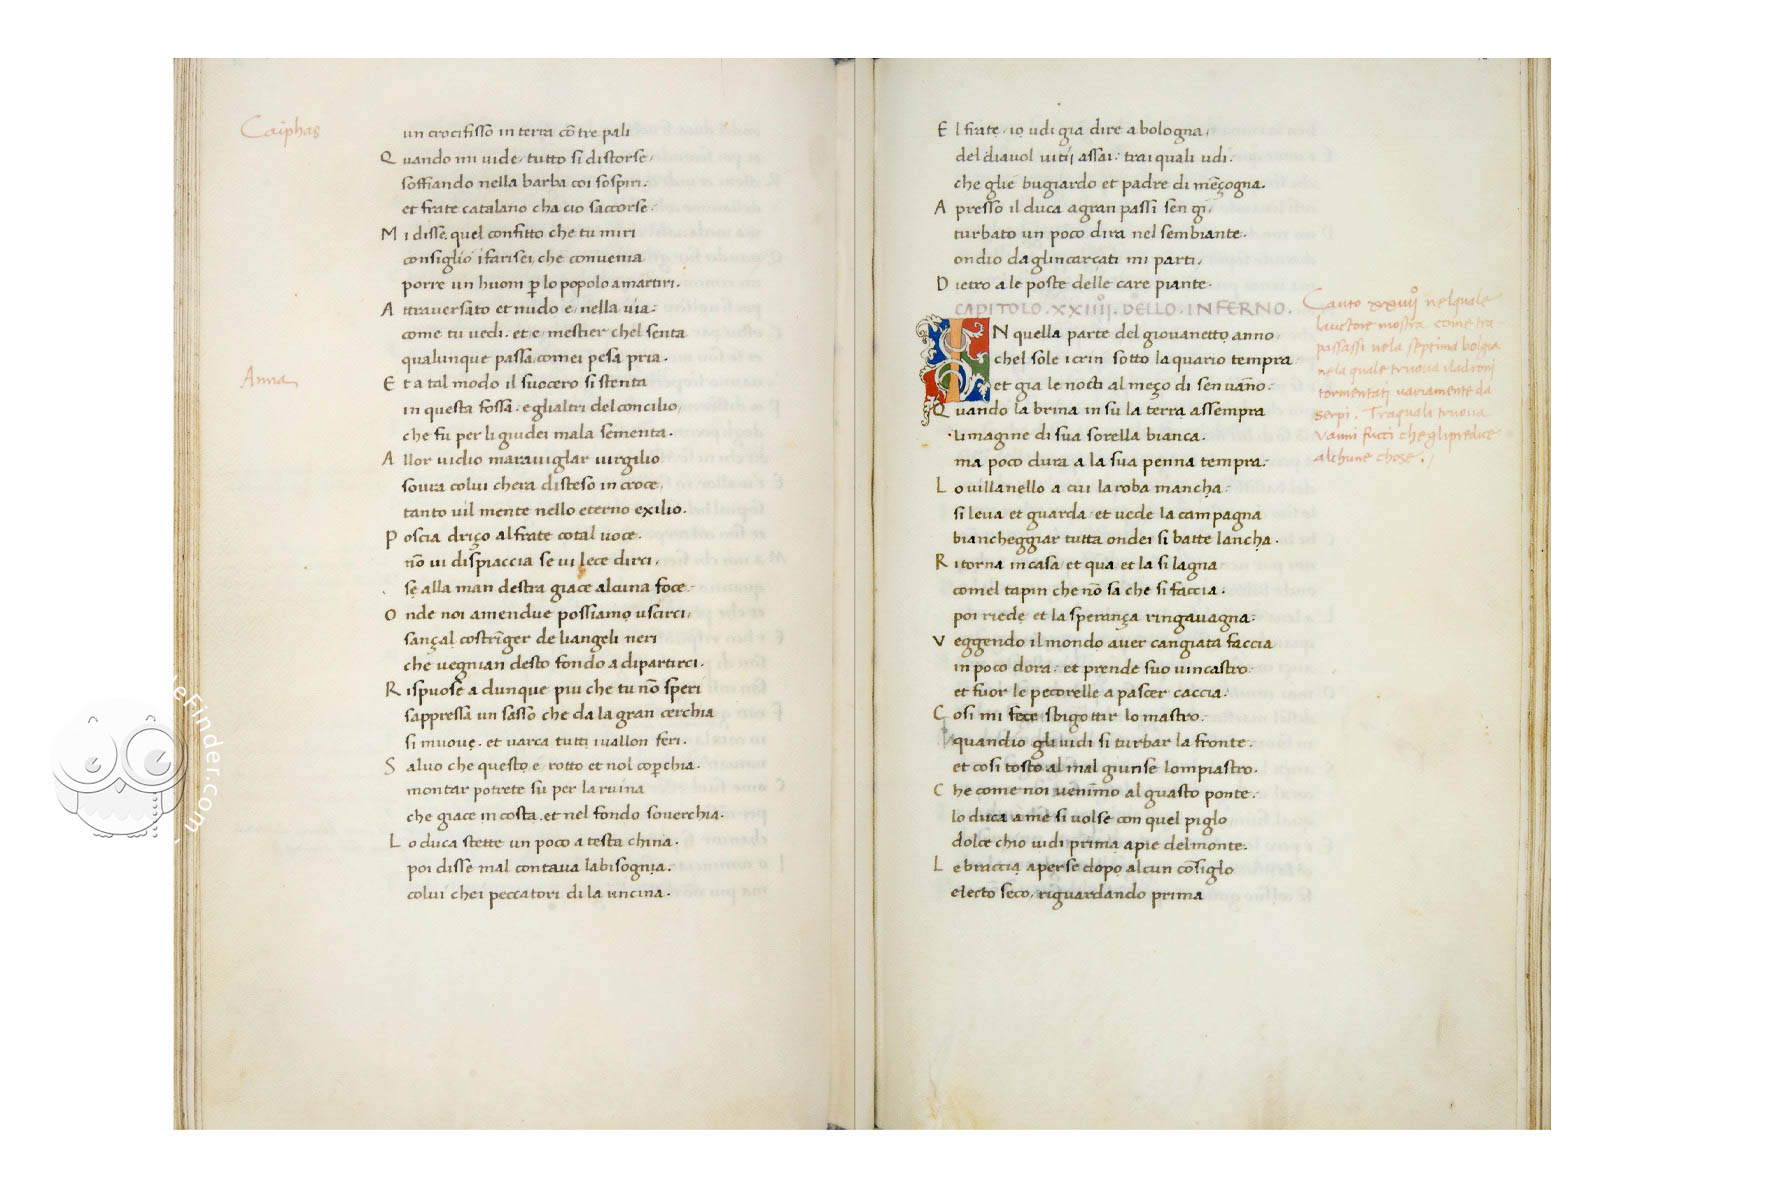 Caiphas
un crocifisso in terra cō tre pali
Quando mi vide, tutto si distorse,
soffiando nella barba coi sospiri:
et frate catalano cha cio saccorse.
Mi disse. quel confitto che tu miri
consiglio i farisei, che convenia
porre un huom ꝑ lo popolo a martiri.
Attraversato et nudo e, nella via:
come tu vedi. et e, mestier chel senta
qualunque passa, comei pesa pria.
Anna
Et a tal modo il suocero si stenta
in questa fossa. e glialtri del concilio,
che fu per li giudei mala sementa.
Allor vidio maravigliar virgilio
sovra colui chera disteso in croce,
tanto vil mente nello eterno exilio.
Poscia driço al frate cotal voce.
nō vi dispiaccia se vi lece dirci,
se alla man destra giace alcuna foce.
Onde noi amendue possiamo uscirci,
sança costrīger de liangeli neri
che vegnian desto fondo a dipartirci.
Rispuose a dunque piu che tu nō speri
sappressa un sasso che da la gran cerchia
si muove. et varca tutti i vallon feri.
Salvo che questo, e, rotto et nol coꝑchia.
montar potrete su per la ruina
che giace in costa. et nel fondo soverchia.
Lo duca stette un poco a testa china.
poi disse mal contava labisogna.
colui chei peccatori di la uncina.
El frate. io udi gia dire a bologna,
del diavol vitij assai: tra i quali udi.
che glie bugiardo et padre di mēçogna.
Apresso il duca a gran passi sen gi,
turbato un poco dira nel sembiante.
ondio daglincarcati mi parti,
Dietro a le poste delle care piante.
CAPITOLO. XXIIII. DELLO. INFERNO.
Canto xxiiij nel quale
lauctore mostra come tra-
passassi ne la septima bolgia
ne la quale truova i ladroni
tormentati variamente da
serpi. Tra quali truova
Vanni fucci che gli predice
alchune chose.
IN quella parte del giovanetto anno
chel sole i crin sotto laquario tempra
et gia le nocti al meço di sen vāno:
Quando la brina in su la terra assempra
limagine di sua sorella bianca.
ma poco dura a la sua penna tempra:
Lo villanello a cui la roba mancha:
si leva et guarda et vede la campagna
biancheggiar tutta ondei si batte lancha.
Ritorna in casa et qua et la si lagna
comel tapin che nō sa che si faccia.
poi riede et la sperança ringavagna:
Veggendo il mondo aver cangiata faccia
in poco dora: et prende suo vincastro.
et fuor le pecorelle a pascer caccia.
Cosi mi fece sbigottir lo mastro.
quandio gli vidi si turbar la fronte.
et cosi tosto al mal giunse lompiastro.
Che come noi venimo al guasto ponte.
lo duca a me si volse con quel piglo
dolce chio vidi prima a pie del monte.
Le braccia aperse dopo alcun cōsiglo
electo seco. riguardando prima
eFinder.com